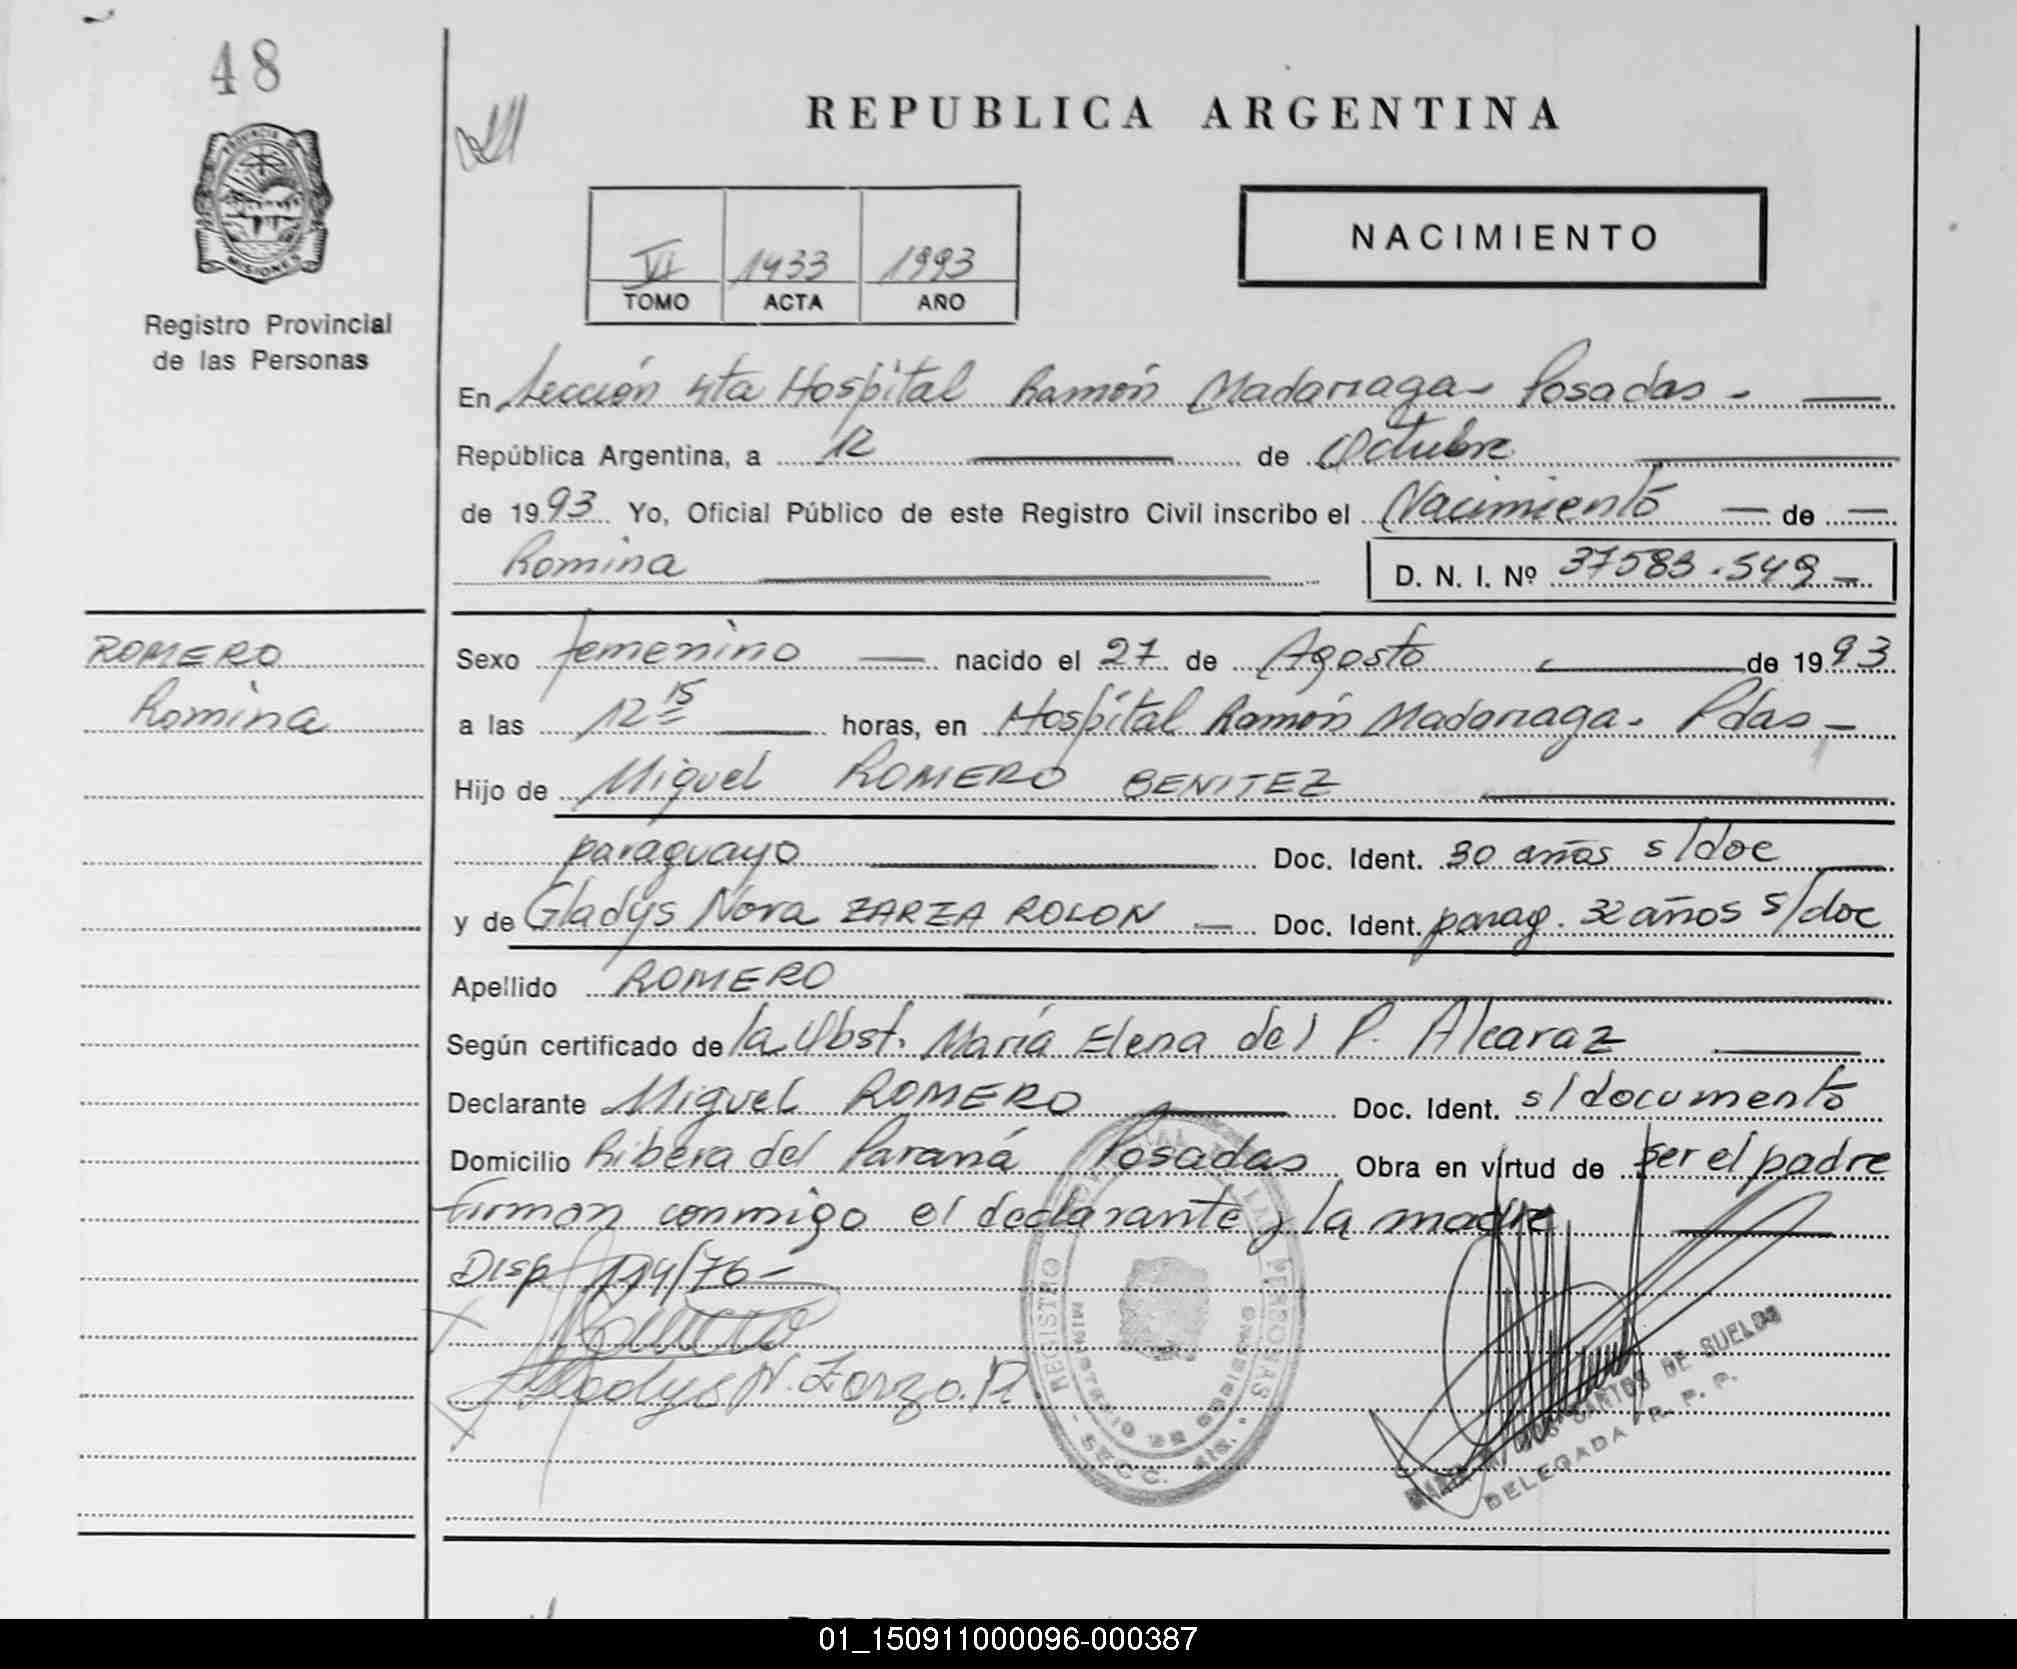 48
PROVINCIA
MISIONES
Registro Provincial
de las Personas
REPUBLICA ARGENTINA
VI 1433 1993
TOMO ACTA AÑO
NACIMIENTO
En Sección 4ta Hospital Ramón Madariaga - Posadas -
República Argentina, a 12 de Octubre
de 1993 Yo, Oficial Público de este Registro Civil inscribo el Nacimiento de
Romina
D. N. I. Nº 37583.549
ROMERO
Romina
Sexo femenino nacido el 27 de Agosto de 1993
a las 12 15 horas, en Hospital Ramón Madariaga - Pdas -
Hijo de Miguel ROMERO BENITEZ
paraguayo Doc. Ident. 30 años s/doc
y de Gladys Nora ZARZA ROLON Doc. Ident. parag. 32 años s/doc
Apellido ROMERO
Según certificado de la Obst. María Elena del P. Alcaraz
Declarante Miguel ROMERO Doc. Ident. s/documento
Domicilio Ribera del Paraná Posadas Obra en virtud de ser el padre
firman conmigo el declarante y la madre
Disp 114/76 -
Gladys N. Zarza. R
REGISTRO PROVINCIAL DE LAS PERSONAS
MINISTERIO DE GOBIERNO
SECC. 4ta.
DOS SANTOS DE SUELDO
DELEGADA R. P. P.
01_150911000096-000387